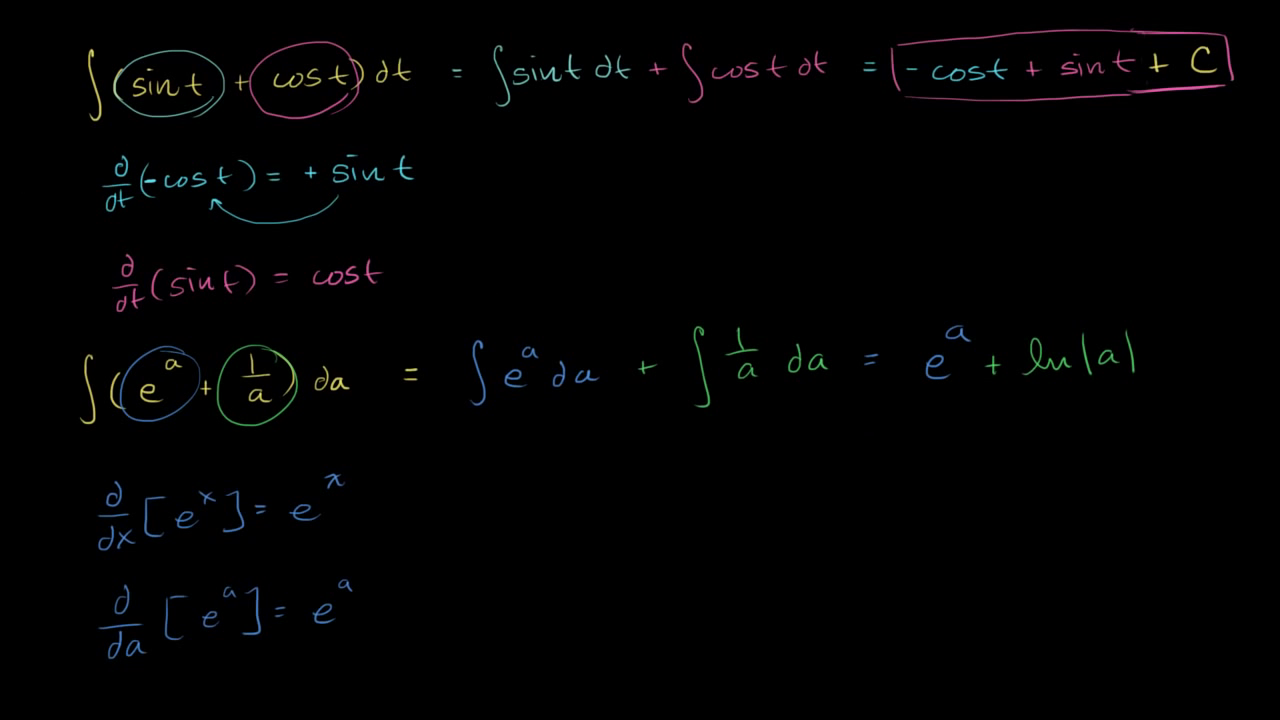 ∫(sin t + cos t) dt = ∫ sin t dt + ∫ cos t dt = - cos t + sin t + C
d/dt (-cos t) = + sin t
d/dt (sin t) = cos t
∫(e^a + 1/a) da = ∫ e^a da + ∫ 1/a da = e^a + ln|a|
d/dx [e^x] = e^x
d/da [e^a] = e^a